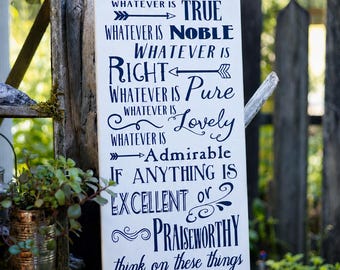 WHATEVER IS TRUE
WHATEVER IS NOBLE
WHATEVER IS
RIGHT
WHATEVER IS Pure
WHATEVER IS
Lovely
WHATEVER IS
Admirable
IF ANYTHING IS
EXCELLENT or
PRAISEWORTHY
think on these things